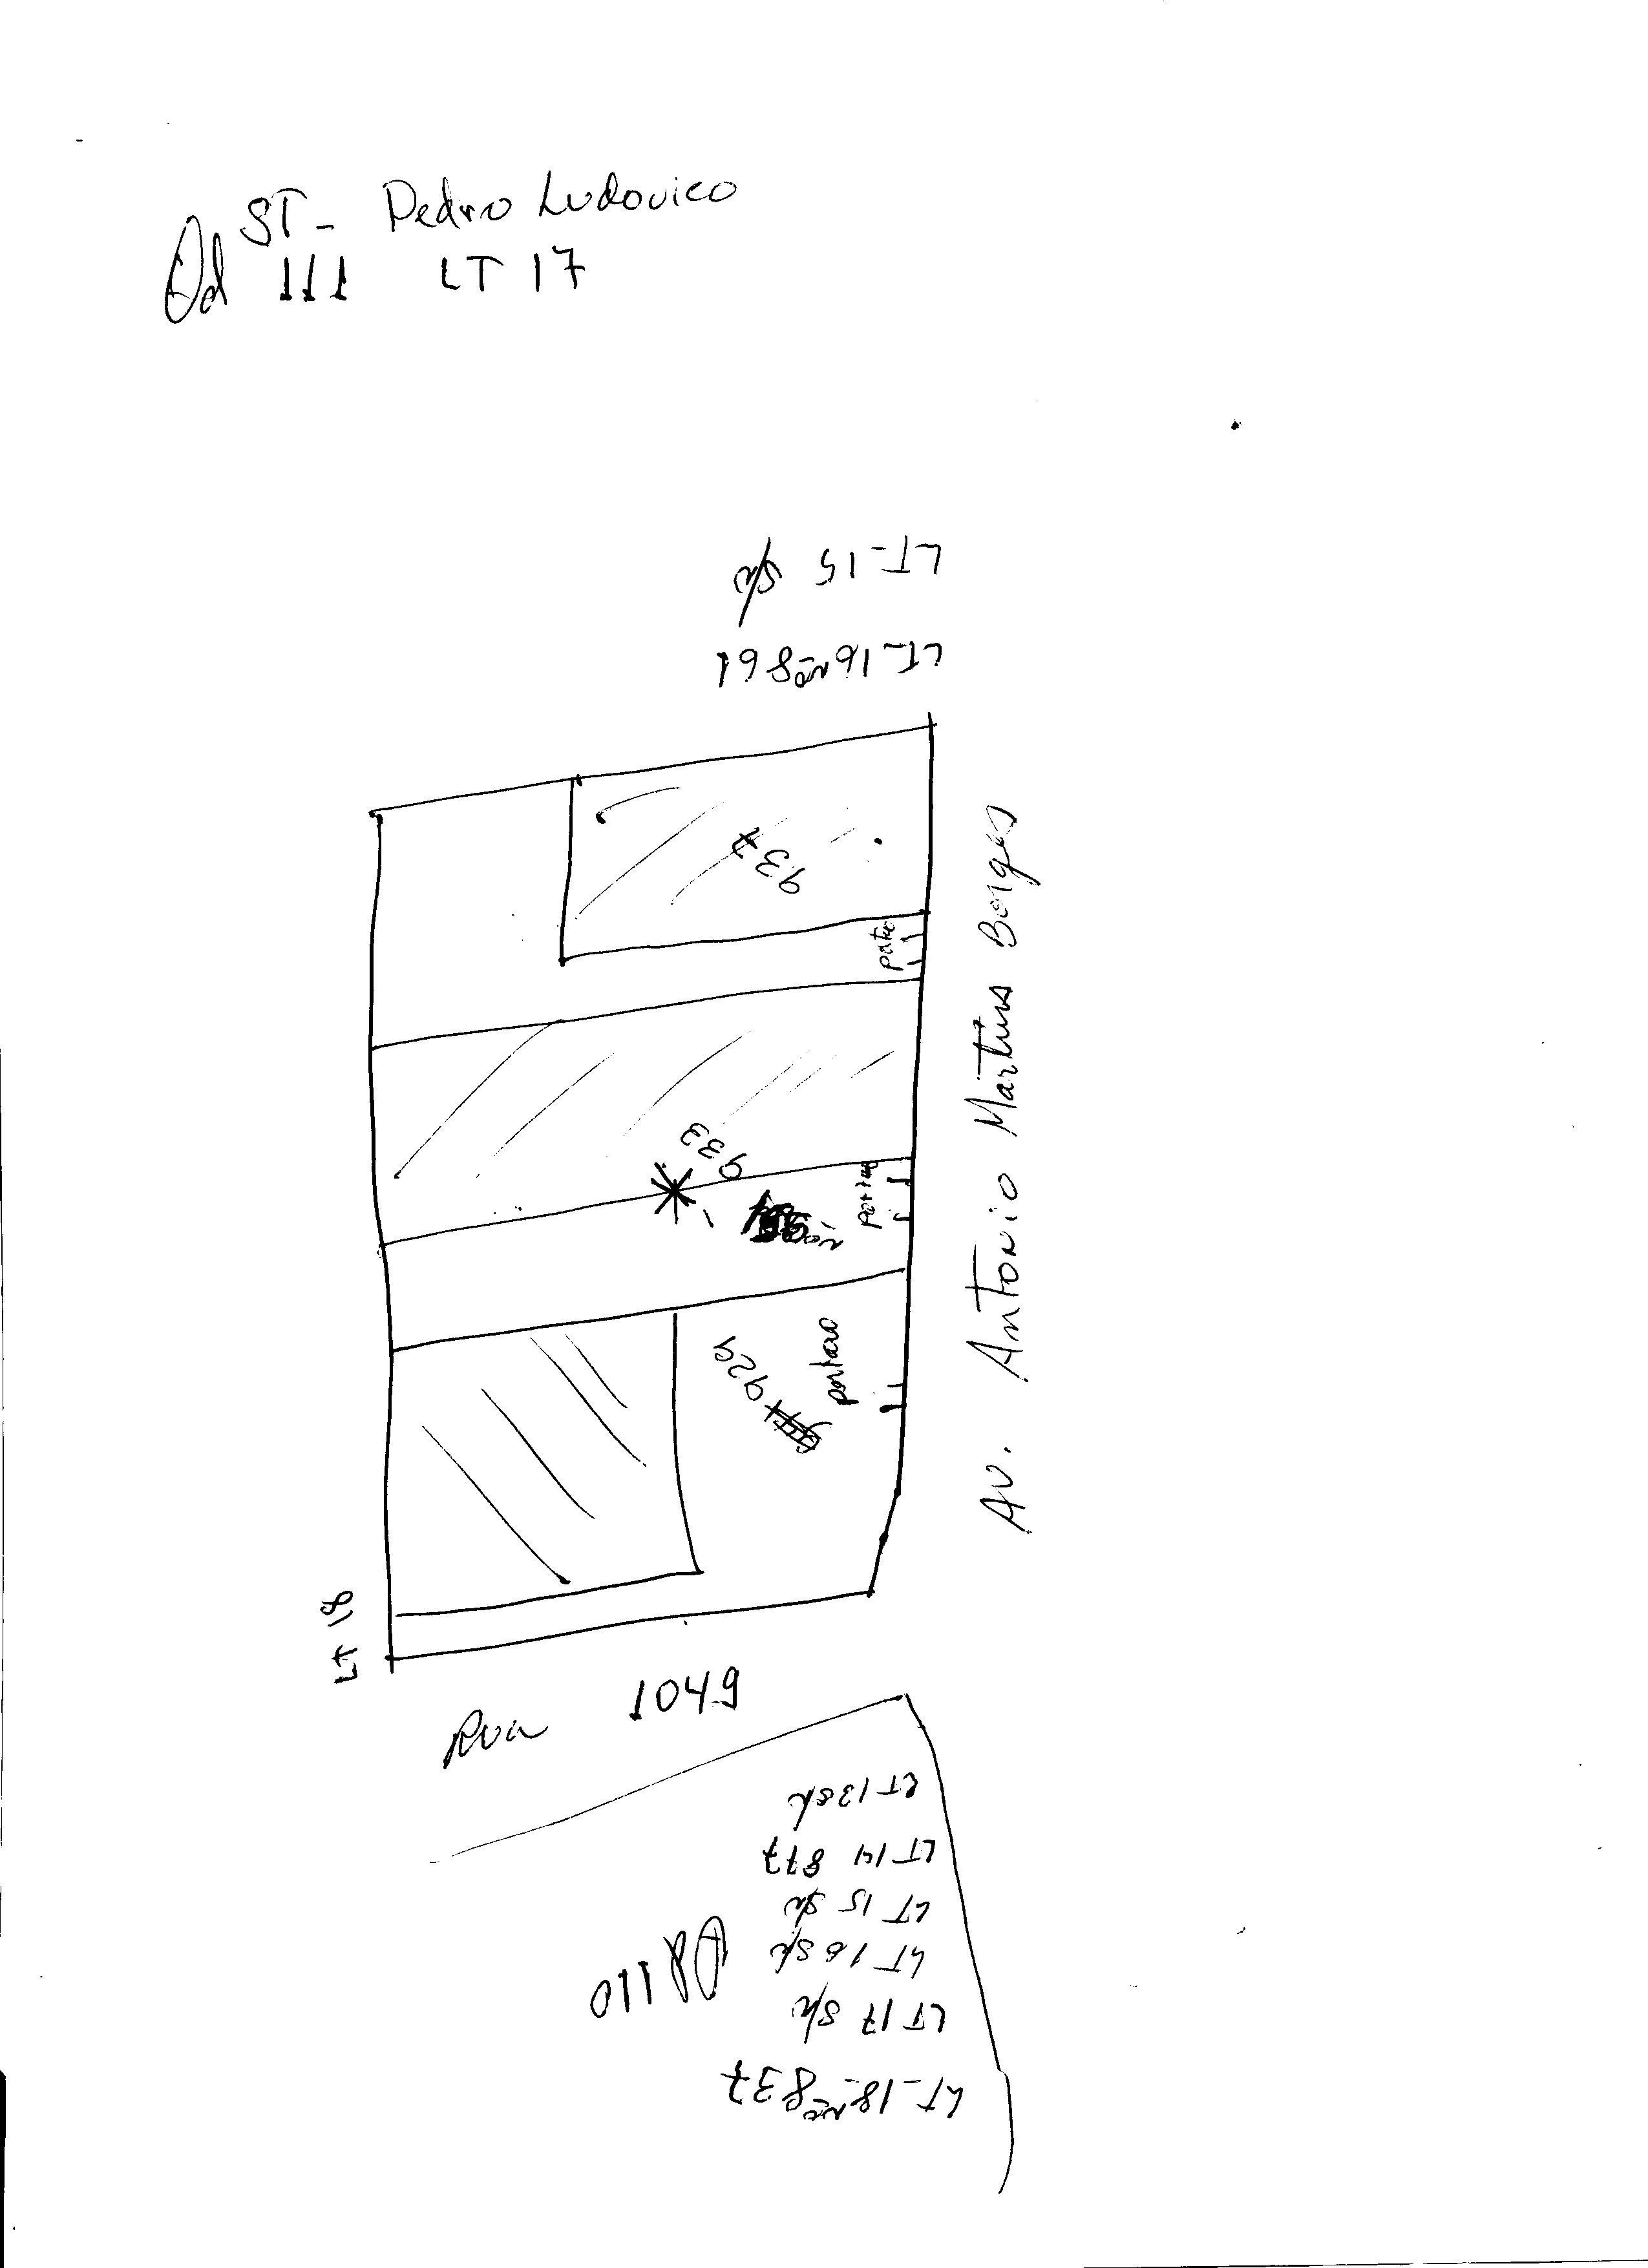 ST - Pedro Ludovico
Qd 111 LT 17
LT-15 s/n
LT-16 nº 861
937
portão
933
portão
nº
929
portão
Av. Antonio Martins Borges
LT 18
Rua 1049
LT 13 s/n
LT 14 817
LT 15 s/n
LT 16 s/n
LT 17 s/n
LT-18 nº 837
Qd 110